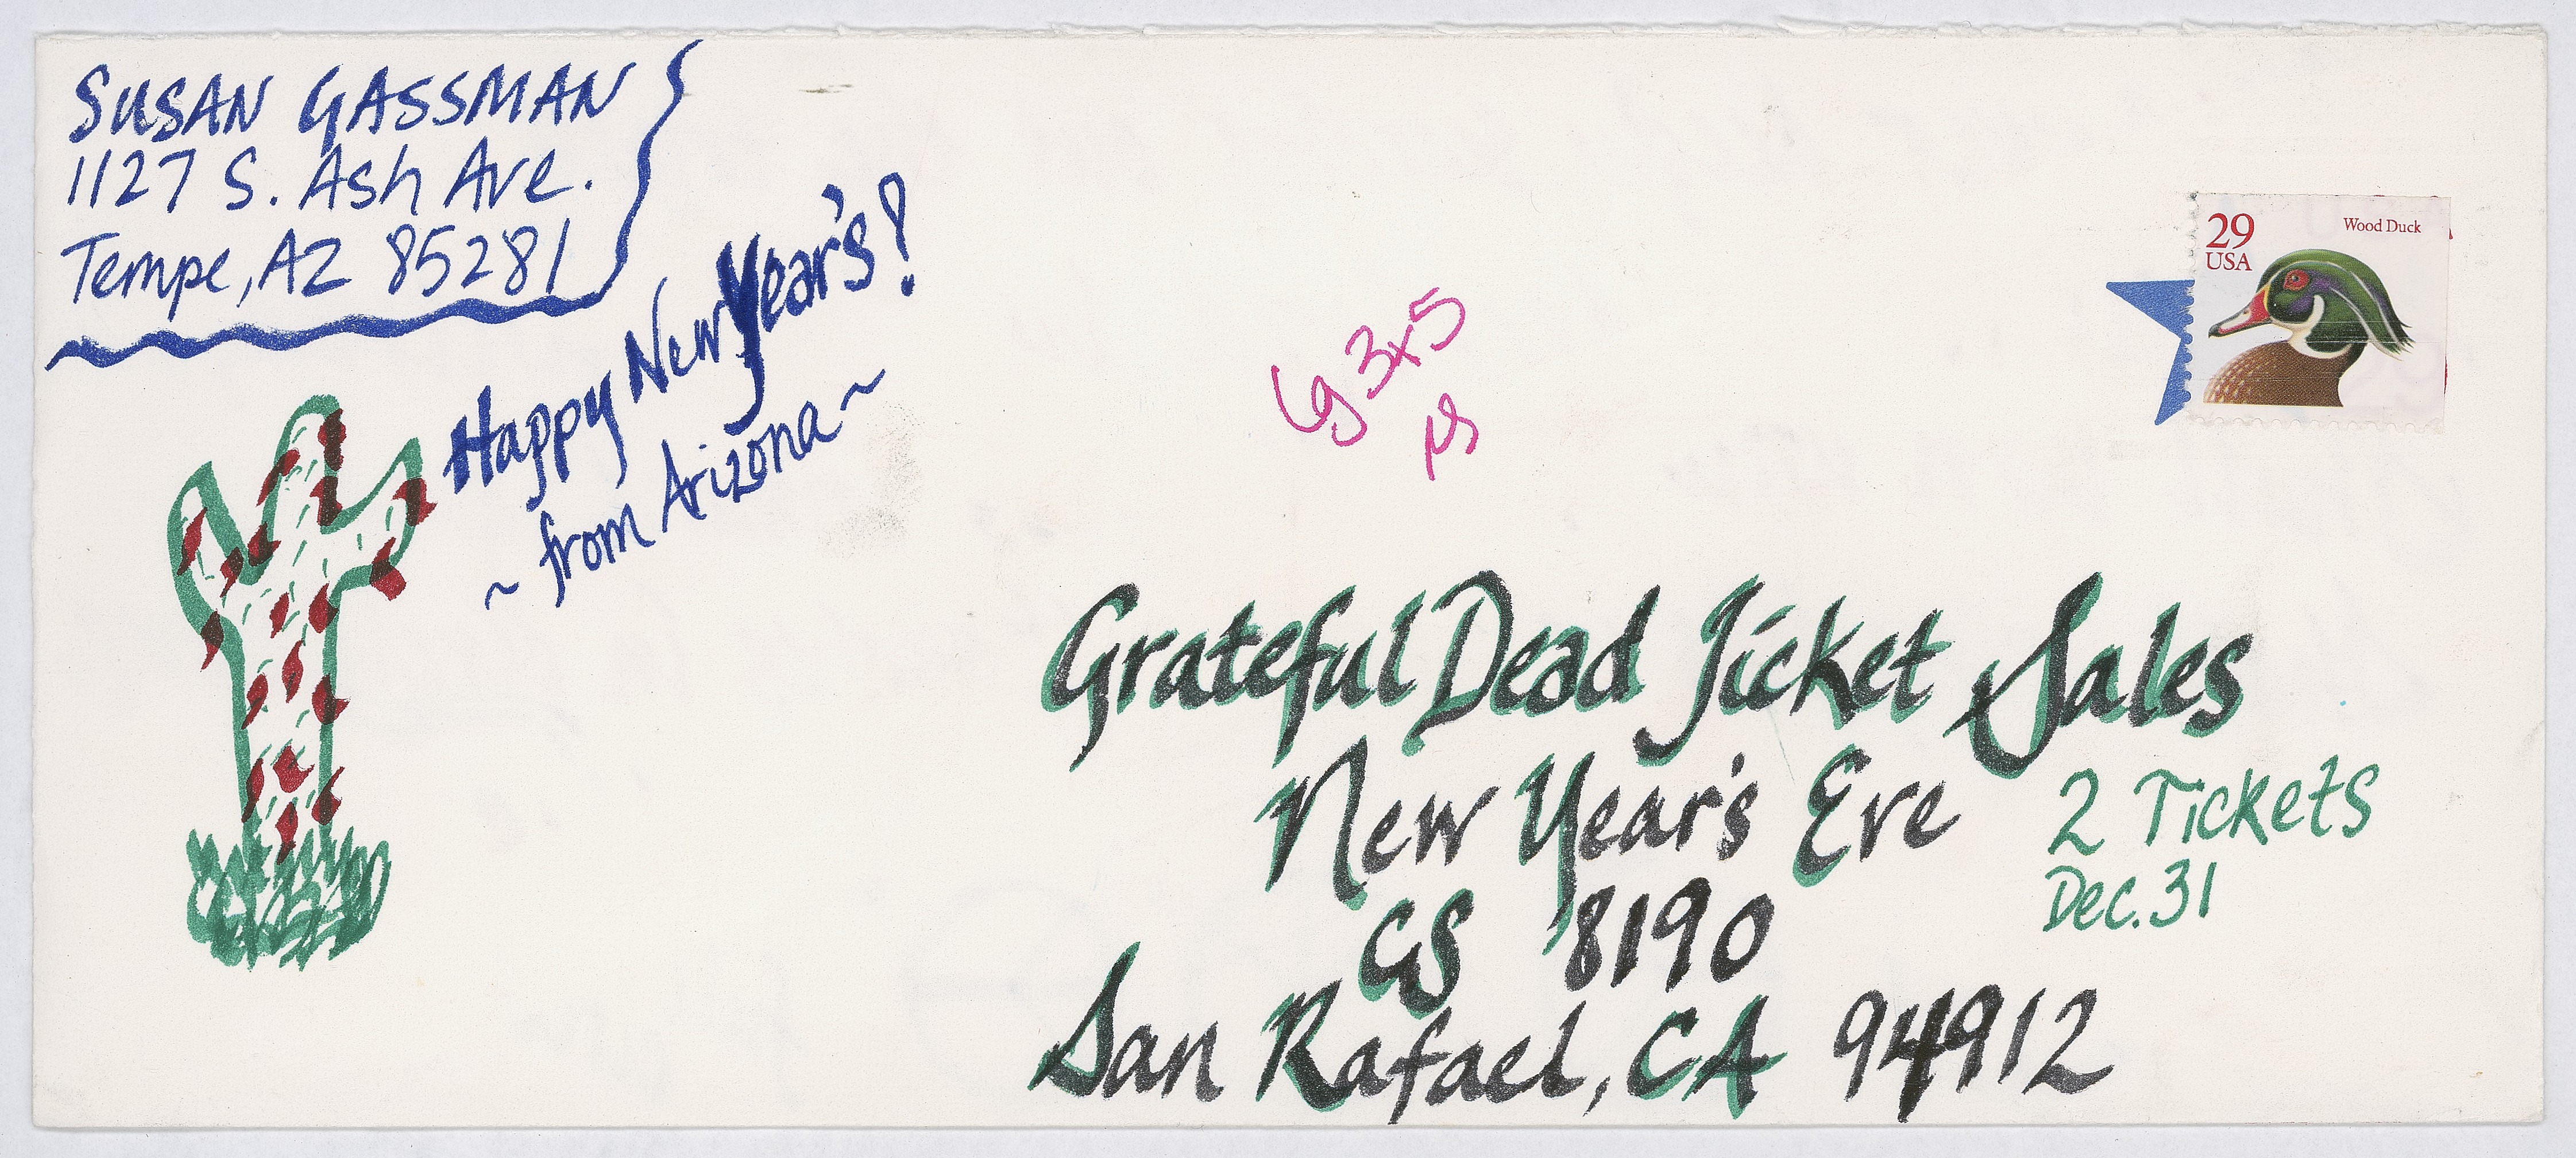 SUSAN GASSMAN
1127 S. Ash Ave.
Tempe, AZ 85281
Happy New Year's!
~ from Arizona ~
29
USA
Wood Duck
Lg 3x5
NS
Grateful Dead Ticket Sales
New Year's Eve
GS 8190
San Rafael, CA 94912
2 Tickets
Dec. 31